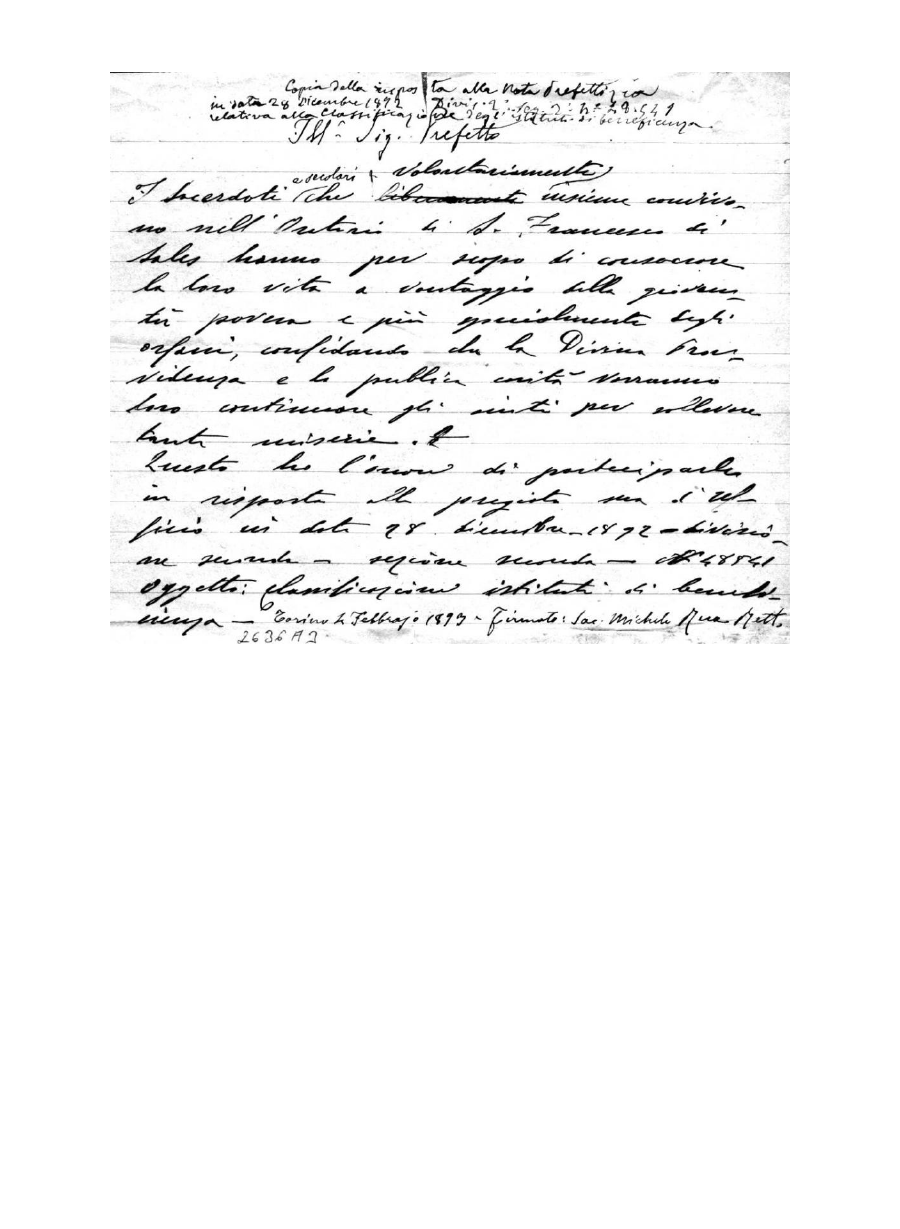 Copia della risposta alla Nota Prefettizia
in data 28 Dicembre 1892 Divis. 2ª Sez. 2ª Nº 48.541
relativa alla Classificazione degli istituti di beneficienza.
Ill. Sig. Prefetto
e secolari volontariamente
I Sacerdoti che liberamente insieme convivo-
no nell'Oratorio di S. Francesco di
Sales hanno per scopo di consacrare
la loro vita a vantaggio della gioven-
tù povera e più specialmente degli
orfani, confidando che la Divina Prov-
videnza e la publica carità vorranno
loro continuare gli aiuti per sollevare
tante miserie.
Questo ho l'onore di parteciparle
in risposta alla pregiata sua d'uf-
ficio in data 28 dicembre - 1892 - divisio-
ne seconda - sezione seconda - Nº 48541
Oggetto: classificazione istituti di benefi-
cienza - Torino 2 Febbrajo 1893 - Firmato: Sac. Michele Rua Rett.
2636 A3